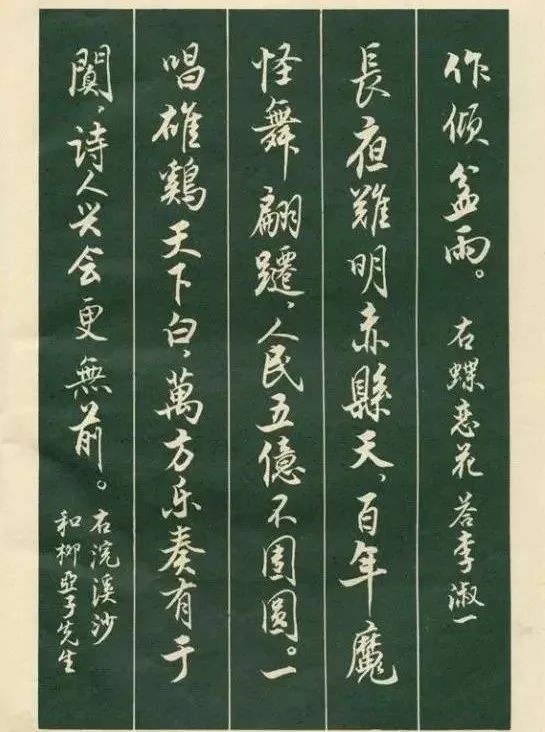 作傾盆雨。 右蝶恋花 答李淑一
長夜難明赤縣天，百年魔
怪舞翩躚，人民五億不團圓。一
唱雄鷄天下白，萬方乐奏有于
闐，诗人兴会更無前。
右浣溪沙
和柳亞子先生